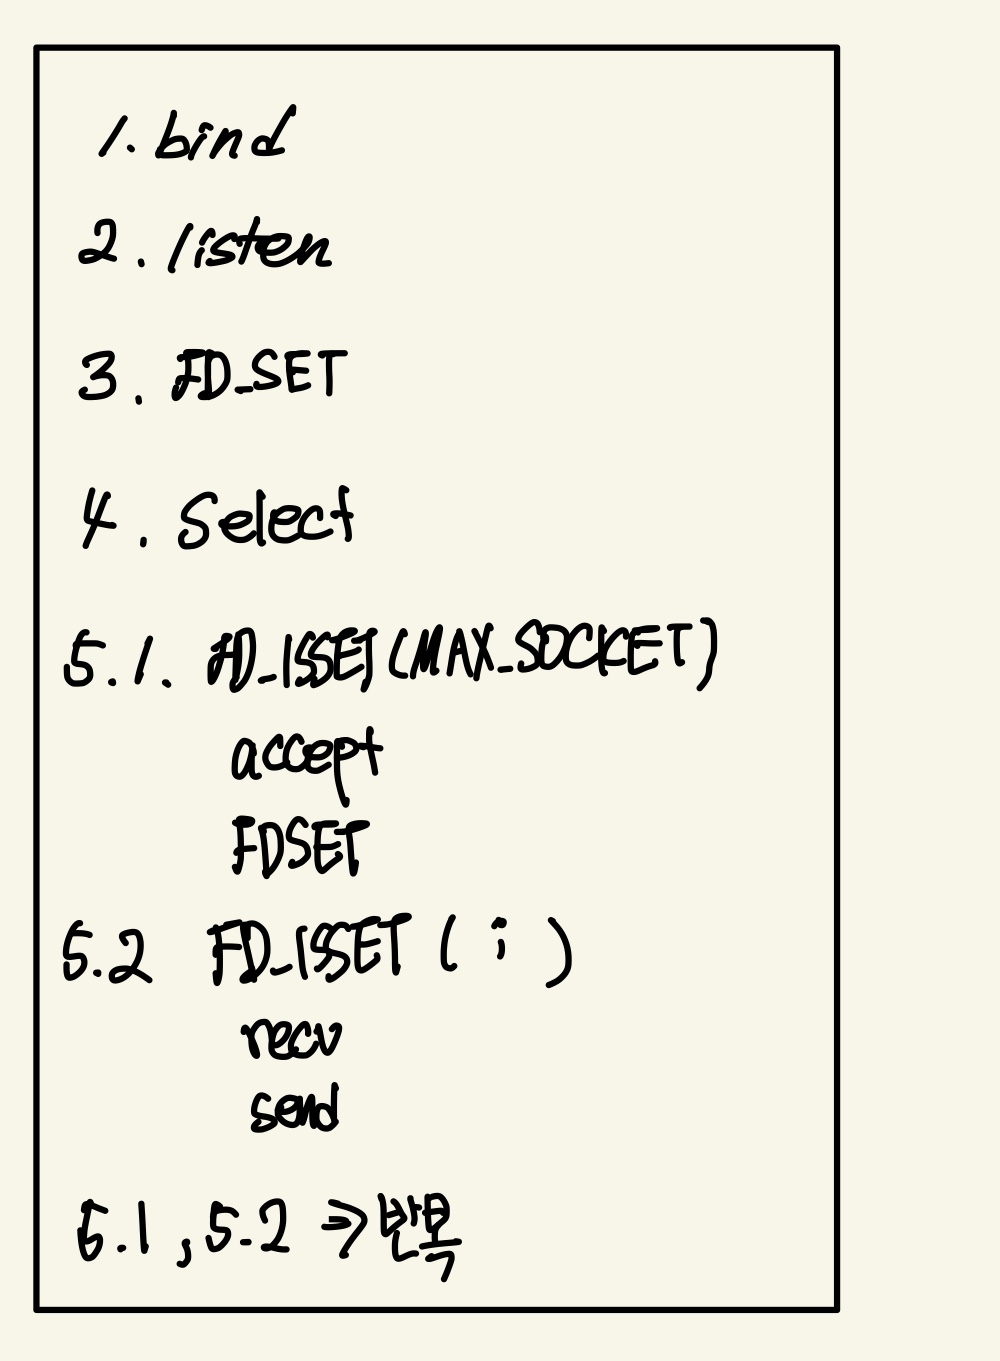 1. bind
2. listen
3. FD_SET
4. Select
5.1. FD_ISSET (MAX_SOCKET)
accept
FDSET
5.2 FD_ISSET ( i )
recv
send
5.1 , 5.2 => 반복